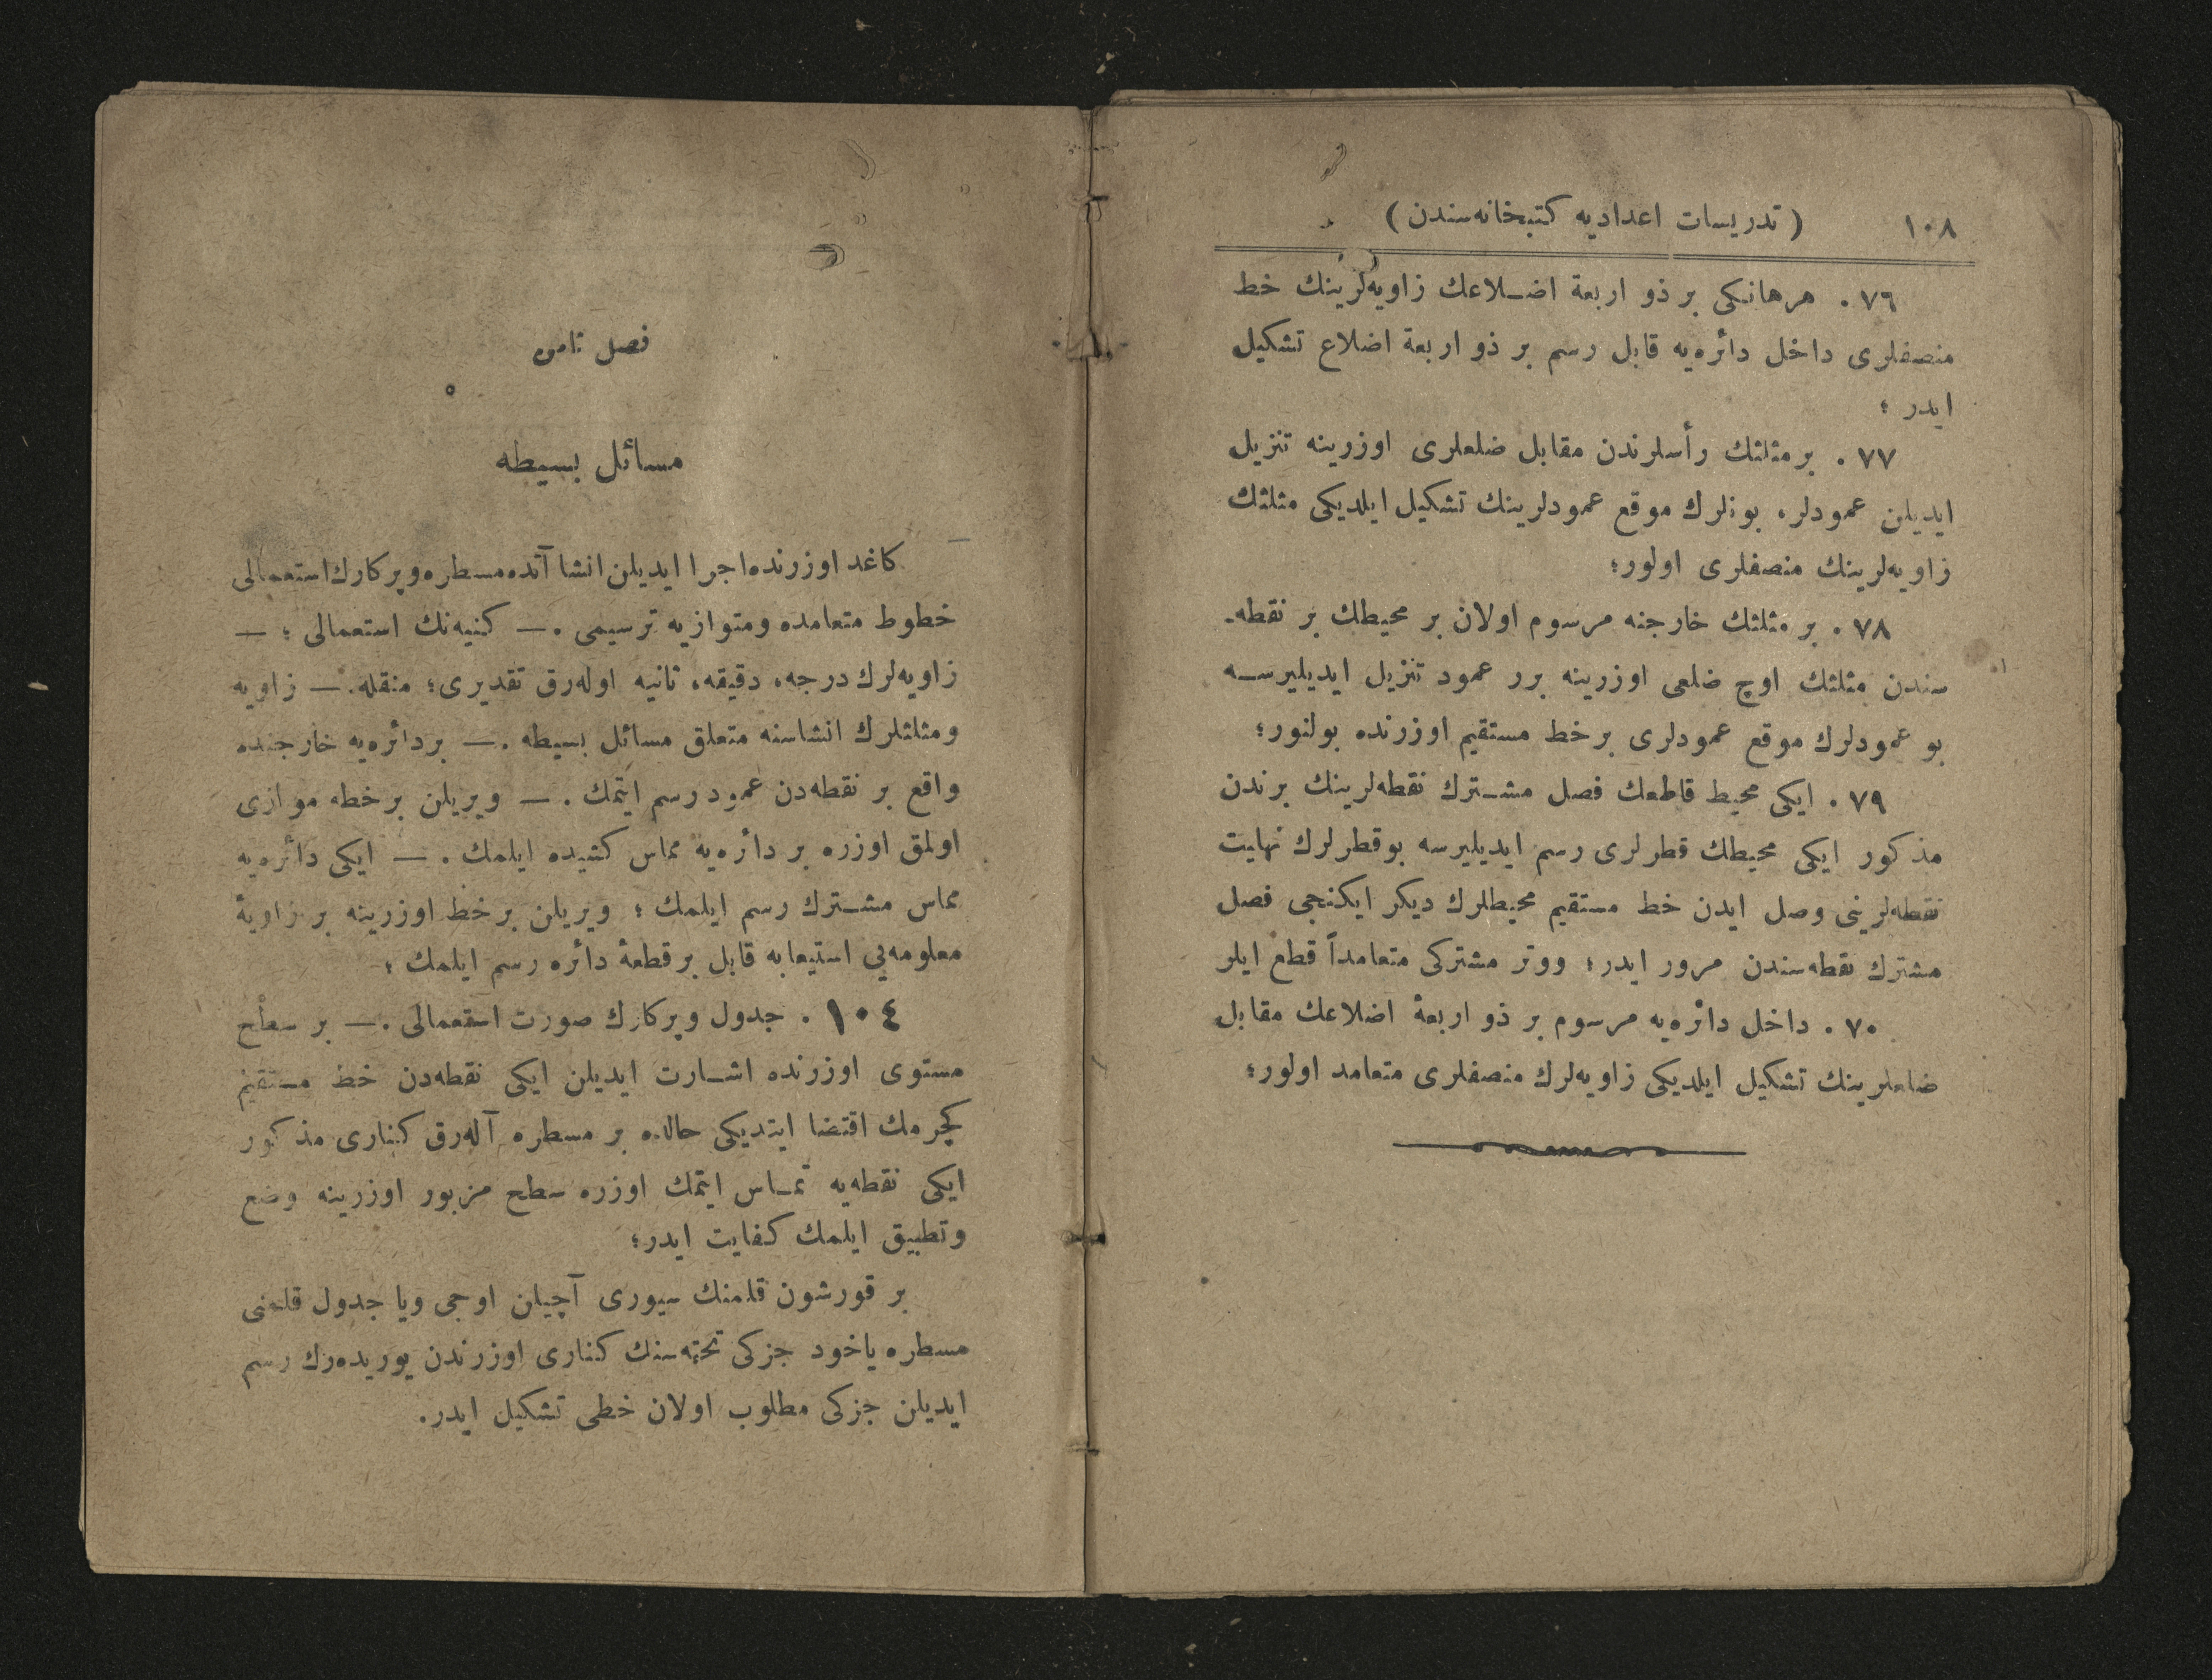 ١٠٨ ( تدريسات اعداديه كتبخانه‌سندن )
٧٦ . هرهانكى بر ذو اربعة اضـلاعك زاويه‌لرينك خط
منصفلرى داخل دائره‌يه قابل رسم بر ذو اربعة اضلاع تشكيل
ايدر ؛
٧٧ . برمثلثك رأسلرندن مقابل ضلعلرى اوزرينه تنزيل
ايديلن عمودلر، بونلرك موقع عمودلرينك تشكيل ايلديكى مثلثك
زاويه‌لرينك منصفلرى اولور؛
٧٨ . بر مثلثك خارجنه مرسوم اولان بر محيطك بر نقطه‌ـ
سندن مثلثك اوچ ضلعى اوزرينه برر عمود تنزيل ايديليرسـه
بو عمودلرك موقع عمودلرى برخط مستقيم اوزرنده بولنور؛
٧٩ . ايكى محيط قاطعك فصل مشـترك نقطه‌لرينك برندن
مذكور ايكى محيطك قطرلرى رسم ايديليرسه بوقطرلرك نهايت
نقطه‌لرينى وصل ايدن خط مستقيم محيطلرك ديكر ايكنجى فصل
مشترك نقطه‌سندن مرور ايدر؛ ووتر مشتركى متعامداً قطع ايلر
٧٠ . داخل دائره‌يه مرسوم بر ذو اربعة اضلاعك مقابل
ضلعلرينك تشكيل ايلديكى زاويه‌لرك منصفلرى متعامد اولور؛
فصل ثامن
مسائل بسيطه
كاغد اوزرنده اجرا ايديلن انشاآتده مسطره وپركارك استعمالى
خطوط متعامده ومتوازيه ترسيمى . — كنيه‌نك استعمالى ؛ —
زاويه‌لرك درجه، دقيقه، ثانيه اوله‌رق تقديرى؛ منقله. — زاويه
ومثلثلرك انشاسنه متعلق مسائل بسيطه . — بردائره‌يه خارجنده
واقع بر نقطه‌دن عمود رسم ايتمك . — ويريلن برخطه موازى
اولمق اوزره بر دائره‌يه مماس كشيده ايلمك . — ايكى دائره‌يه
مماس مشـترك رسم ايلمك ؛ ويريلن برخط اوزرينه بر زاوية
معلومه‌يى استيعابه قابل برقطعۀ دائره رسم ايلمك ؛
١٠٤ . جدول وپركارك صورت استعمالى . — بر سطح
مستوى اوزرنده اشـارت ايديلن ايكى نقطه‌دن خط مستقيم
كچرمك اقتضا ايتديكى حالده بر مسطره آله‌رق كنارى مذكور
ايكى نقطه‌يه تمـاس ايتمك اوزره سطح مزبور اوزرينه وضع
وتطبيق ايلمك كفايت ايدر؛
بر قورشون قلمنك سيورى آچيلن اوجى ويا جدول قلمنى
مسطره ياخود جزكى تخته‌سنك كنارى اوزرندن يوريده‌رك رسم
ايديلن جزكى مطلوب اولان خطى تشكيل ايدر.